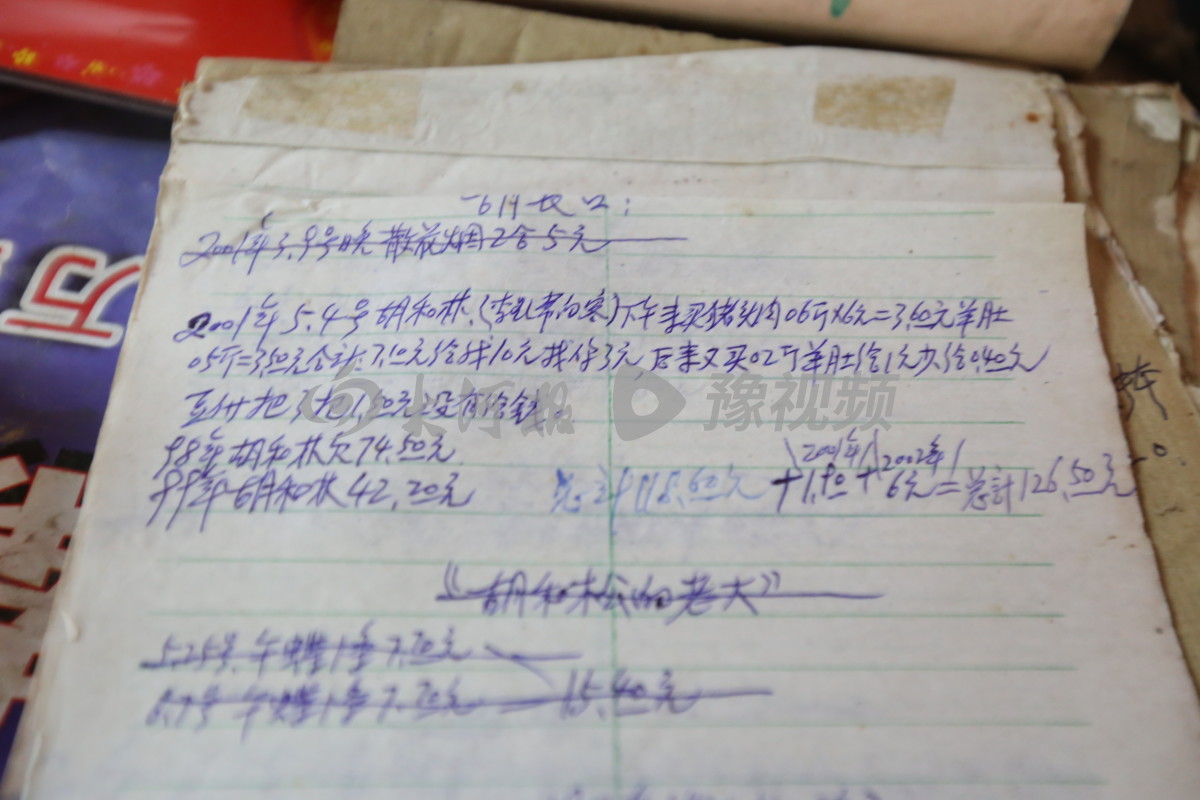 2001年3.9号晚散花烟2合5元
2001年5.4号胡和林,(李孔帮的客)下午来买猪头肉06斤X6元=3.60元羊肚
05斤=3.50元合计:7.10元给我10元找你3元,后来又买02斤羊肚给1元少给0.40元
1.80元没有给钱。
98年胡和林欠74.50元
99年胡和林42.20元 总计118.60元 +1.90+6元=总計126.50元
2001年 2002年
《胡和林的老大》
5.25号.午 1 7.70元
6.7号 午 1 7.70元 15.40元
大河报 豫视频